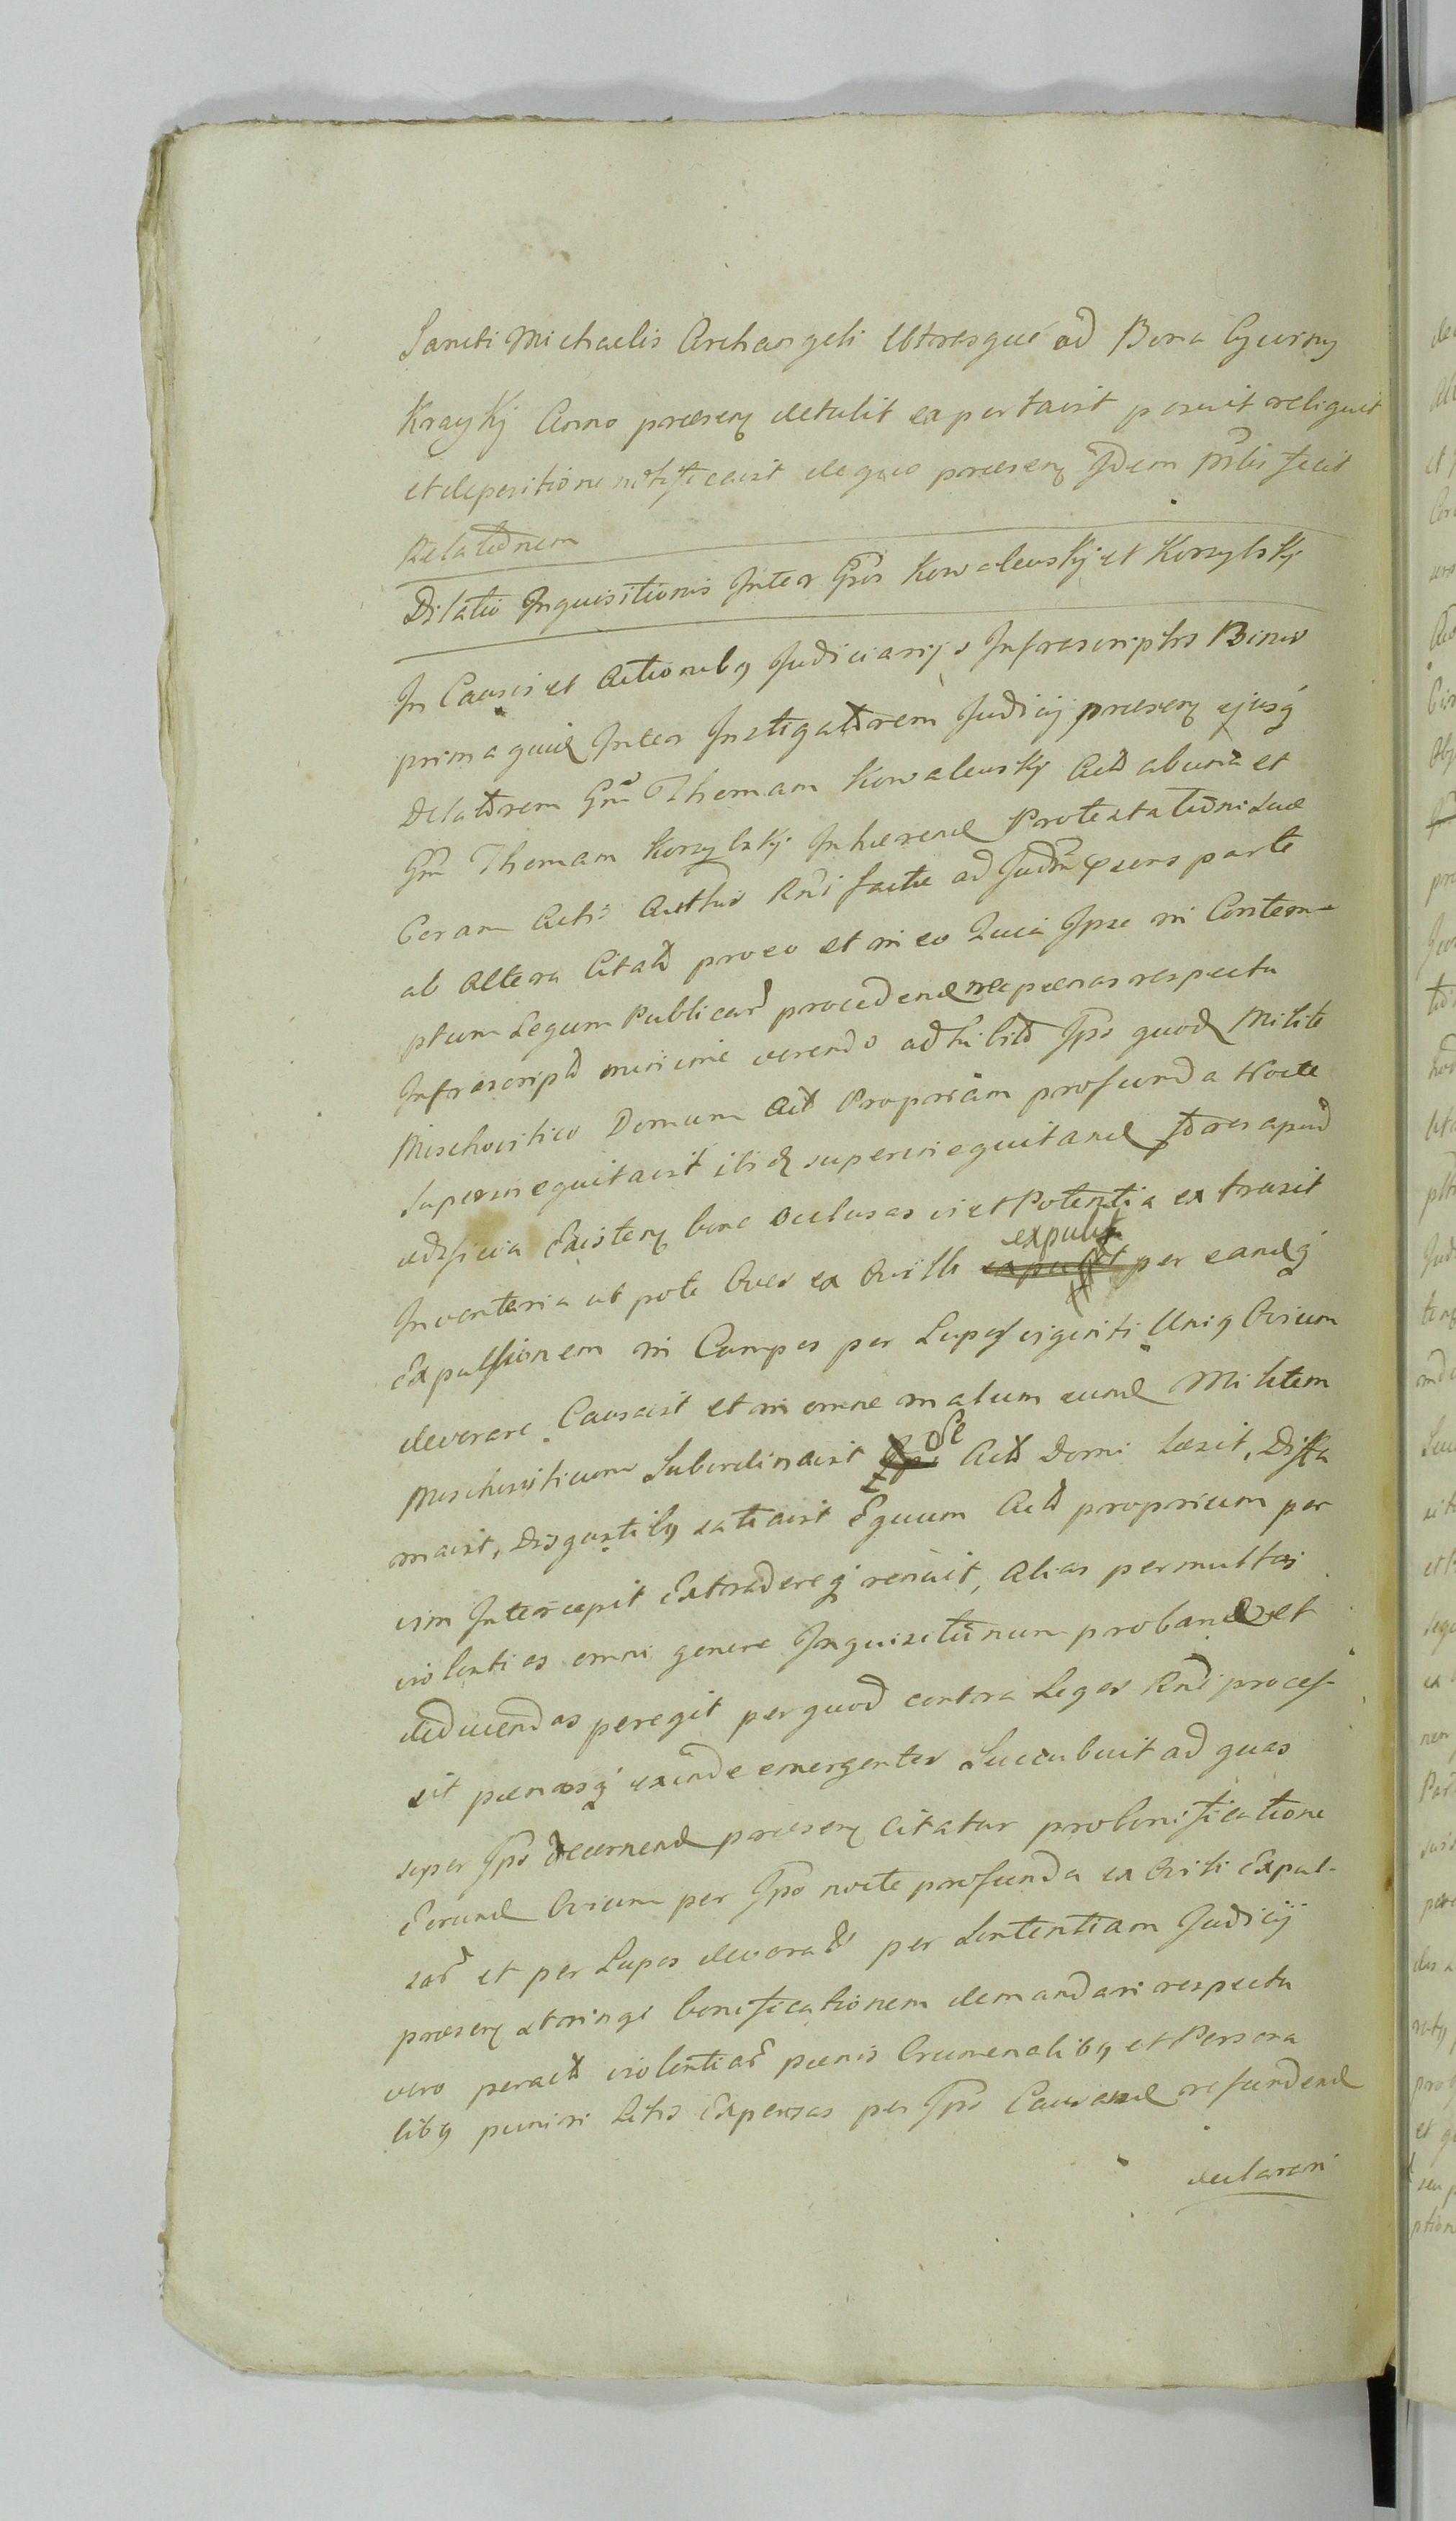 Sancti Michaelis Archangeli Utresque ad Bona Czyrny
Krayky Anno praesen detulit exportavit posuit reliquit
et depositione notificavit de quo praesen Idem Mrlis fecit
Relationem
Dilatio Inquisitionis Inter Gsos Kowalewsky et Korzybsky
In Causis et Actionibq Judiciarijs Infrascriptis Binis
prima quid Inter Instigatorem Judicij praesen ejusq
Delatorem Gnm Thomam Kowalewsky Acto ab una et
Gnm Thomam Korzybsky Inhaerend Protestationi suae
Coram Actis Authis Rni factae ad Judm psens parte
ab Altera Citato pro eo et in eo Quia Ipse in Contem-
ptum Legum Publicar procedend nec paenas respectu
Infrascripto minime verendo adhibito Ipso quod Milite
Moschovitico Domum Acto Propriam profunda Nocte
superinequitavit ibiq superinequitand fores apud
aedificia Existen bene occlusas vi et Potentia extraxit
Inventaria ut pote Oves ex Ovilli expulit per eandq
Expulsionem in Campos per Lupos viginti Uniq Ovium
devorare Causavit et in omne malum eund Militem
Moschoviticum Subordinavit de Acto Domi laesit, Diffa
mavit, Disgustibq satiavit Equum Acto proprium per
vim Intercepit Extradereq renuit, Alias permultas
violentias omni genere Inquisitionum proband et
deducendas peregit per quod contra Leges Rni proces-
sit paenasq exinde emergentes Succubuit ad quas
super Ipso decernend praesen citatur pro bonificatione
Eorund Ovium per Ipso nocte profunda ex Ovili Expul-
sar et per Lupos devorato per Sententiam Judicij
praesen stringi bonificationem demandari respectu
vero peracto violentiar paenis Crumenalibq et Persona
libq puniri Litis Expensas per Ipso Causand refundend
declarari